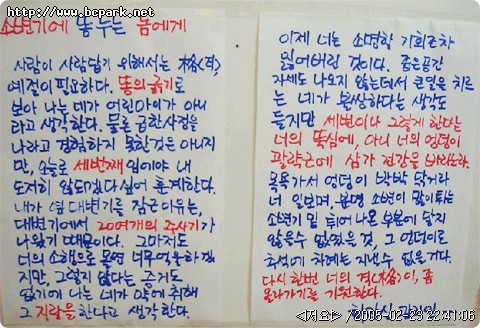 http://www.hcpark.net
소변기에 똥 누는 놈에게
사람이 사람답기 위해서는 格(격),
예절이 필요하다. 똥의 굵기로
보아 나는 네가 어린아이가 아니
라고 생각한다. 물론 급한사정을
나라고 경험하지 못한것은 아니지
만, 오늘로 세번째 임에야 내
도저히 안되겠다 싶어 훈계한다.
내가 옆 대변기를 잠근 이유는,
대변기에서 20여개의 주사기가
나왔기 때문이다. 그마저도
너의 소행으로 몰면 너무 억울하겠
지만, 그렇지 않다는 증거도
없기에 나는 네가 약에 취해
그 지랄을 한다고 생각한다.
이제 너는 소명할 기회조차
잃어버린 것이다. 좁은공간
자세도 나오지 않는데서 큰일을 치르
는 네가 불쌍하다는 생각도
들지만 세번이나 그렇게 한다는
너의 뚝심에, 아니 너의 엉덩이
괄약근에 삼가 건강을 바라노라.
목욕가서 엉덩이 박박 닦거라
너 일보며, 분명 소변이 많이튀는
소변기 밑 튀어 나온 부분에 닿지
않을수 없었을 것, 그 엉덩이로
추석에 차례는 지낼수 없을거다.
다시 한번 너의 격(格)이, 좀
올라가기를 기원한다.
2005-02-23 22:41:06